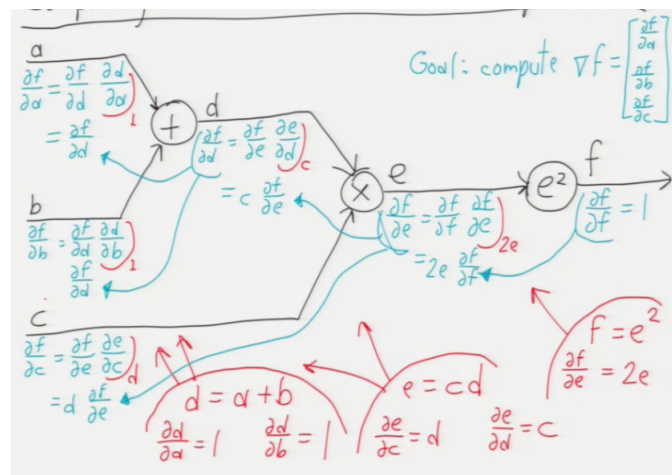 a
∂f/∂a = ∂f/∂d ∂d/∂a ) 1
= ∂f/∂d
+
d
∂f/∂d = ∂f/∂e ∂e/∂d ) c
= c ∂f/∂e
Goal: compute ∇f = [ ∂f/∂a ∂f/∂b ∂f/∂c ]
b
∂f/∂b = ∂f/∂d ∂d/∂b ) 1
∂f/∂d
x
e
∂f/∂e = ∂f/∂f ∂f/∂e ) 2e
= 2e ∂f/∂f
e²
f
∂f/∂f = 1
c
∂f/∂c = ∂f/∂e ∂e/∂c ) d
= d ∂f/∂e
d = a + b
∂d/∂a = 1 ∂d/∂b = 1
e = cd
∂e/∂c = d ∂e/∂d = c
f = e²
∂f/∂e = 2e